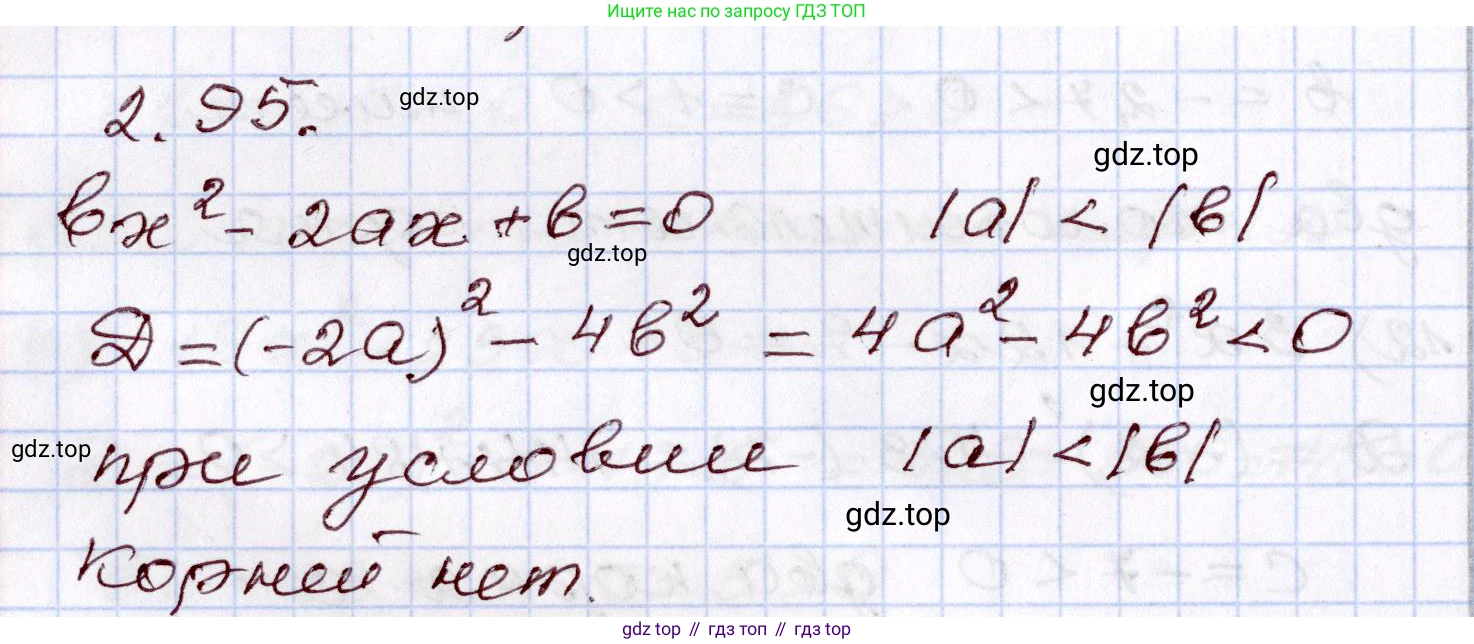 Ищите нас по запросу ГДЗ ТОП
2.95.
gdz.top
gdz.top
bx² - 2ax + b = 0 |a| < |b|
gdz.top
D = (-2a)² - 4b² = 4a² - 4b² < 0
gdz.top
gdz.top
при условии |a| < |b|
gdz.top
корней нет.
gdz top // гдз топ // gdz top